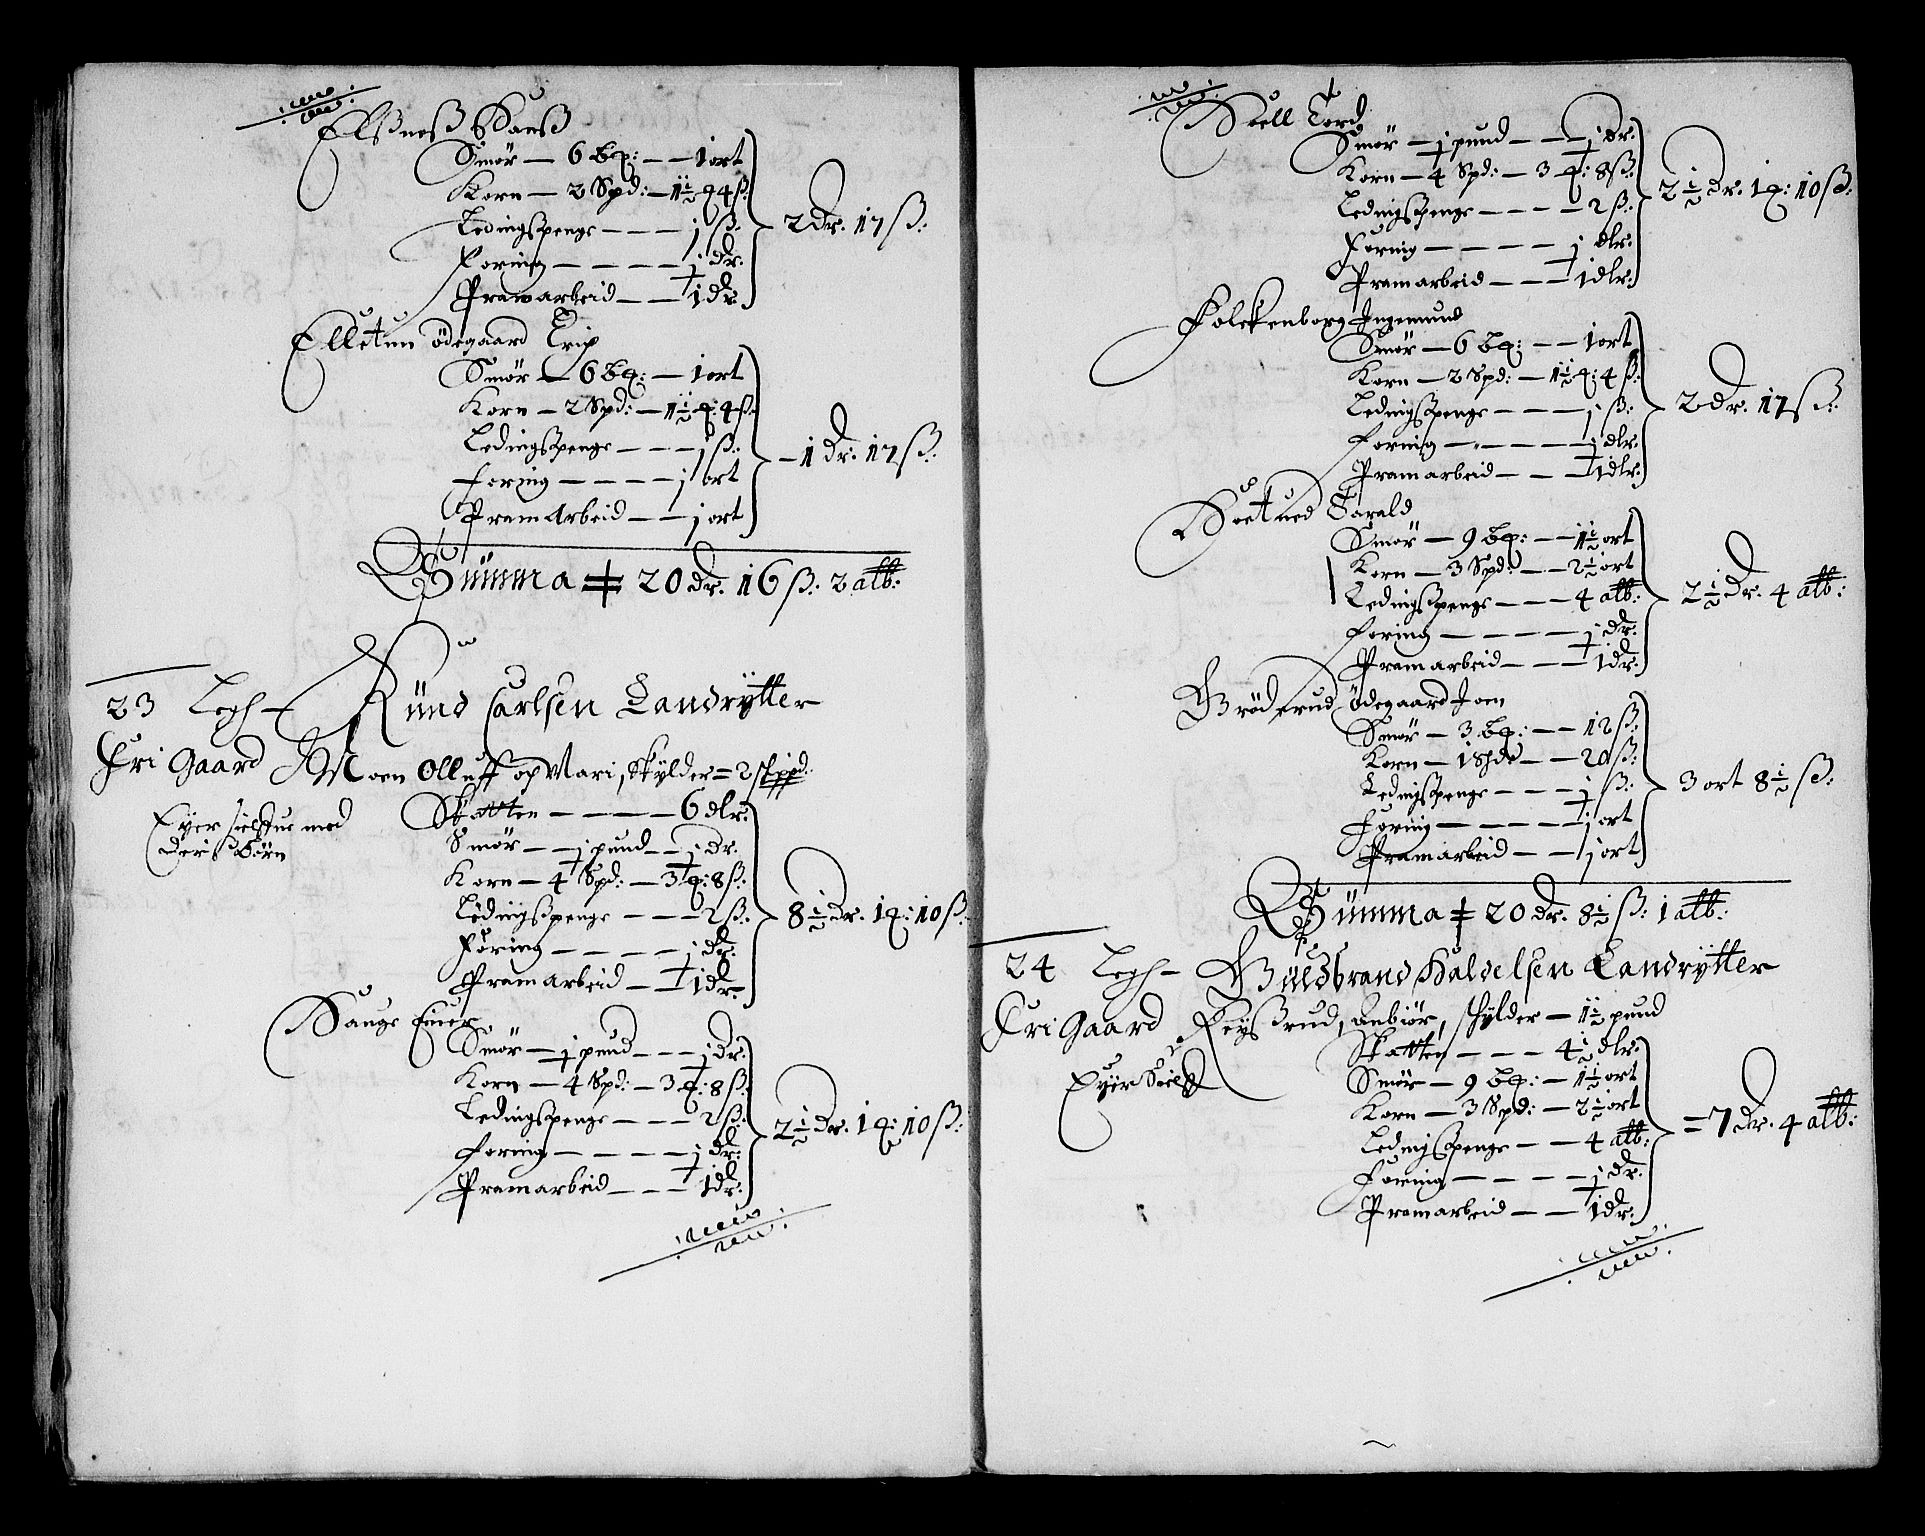 Elßneß Hanß
Smør — 6 bq: — — 1 ort
Korn — 2 Spd: — 1½ q 4 ß:
Ledingßpenge — — — j ß:
Foring — — — — j dr.
Pramarbeid — — 1 dr
2 dr. 17 ß:
Elletun ödegaard Trip
Smør — 6 bq: — 1 ort
Korn — 2 Spd: — 1½ q: 4 ß:
Ledingßpenge — — — j ß:
Foring — — — — j ort
Pramarbeid — — j ort
— 1 dr: 17 ß:
Summa 20 dr. 16 ß: 2 alb:
23 Legh — Knud Carlsen Landrÿtter
Fri Gaard Moen Olluff op Mari, Skÿlder = 2 skppd:
Eyer sielffue med
Deris Börn
Skatten — — — — 6 dlr:
Smør — — j pund — — j dr.
Korn — 4 Spd: — 3 q: 8 ß:
Ledingßpenge — — — 2 ß:
Foring — — — — j dr.
Pramarbeid — — 1 dr.
8½ dr. 1 q: 10 ß:
Hauge Einer
Smør — j pund — — j dr.
Korn — 4 Spd: — 3 q: 8 ß:
Ledingßpenge — — — 2 ß:
Foring — — — — j dr:
Pramarbeid — — — 1 dr:
2½ dr. 1 q: 10 ß:
Kiell Tord
Smør — j pund — — j dr.
Korn — 4 Spd: — 3 q: 8 ß:
Ledingßpenge — — — — 2 ß:
Foring — — — — j dlr.
Pramarbeid — — — 1 dlr:
2½ dr. 1 q: 10 ß:
Folckenborg Ingemund
Smør — 6 bq: — — 1 ort
Korn — 2 Spd: — 1½ q: 4 ß:
Ledingßpenge — — — j ß:
Foring — — — — j dlr.
Pramarbeid — — 1 dlr:
2 dr. 17 ß:
Harald
Smør — 9 bq: — — 1½ ort
Korn — 3 Spd: — — 2½ ort
Ledingßpenge — — — 4 alb:
Foring — — — — j dr.
Pramarbeid — — — 1 dr:
2½ dr. 4 alb:
Gröderud Ödegaard Joen
Smør — 3 bq: — — 12 ß:
Korn — 1 Spd — — 20 ß:
Ledingßpenge — — — j ß:
Foring — — — — j ort
Pramarbeid — — j ort
3 ort 8½ ß:
Summa 20 dr. 8½ ß: 1 alb:
24 Legh — Guldbrand Haldelsen Landrÿtter
Fri Gaard Reyßrud, Anbiör, skÿlder — 1½ pund
Eyer Sielff
Skatten — — — 4½ dlr:
Smør — 9 bq: — 1½ ort
Korn — 3 Spd: — 2½ ort
Ledingßpenge — — 4 alb:
Foring — — — — j dr.
Pramarbeid — — 1 dr:
= 7 dr. 4 alb: